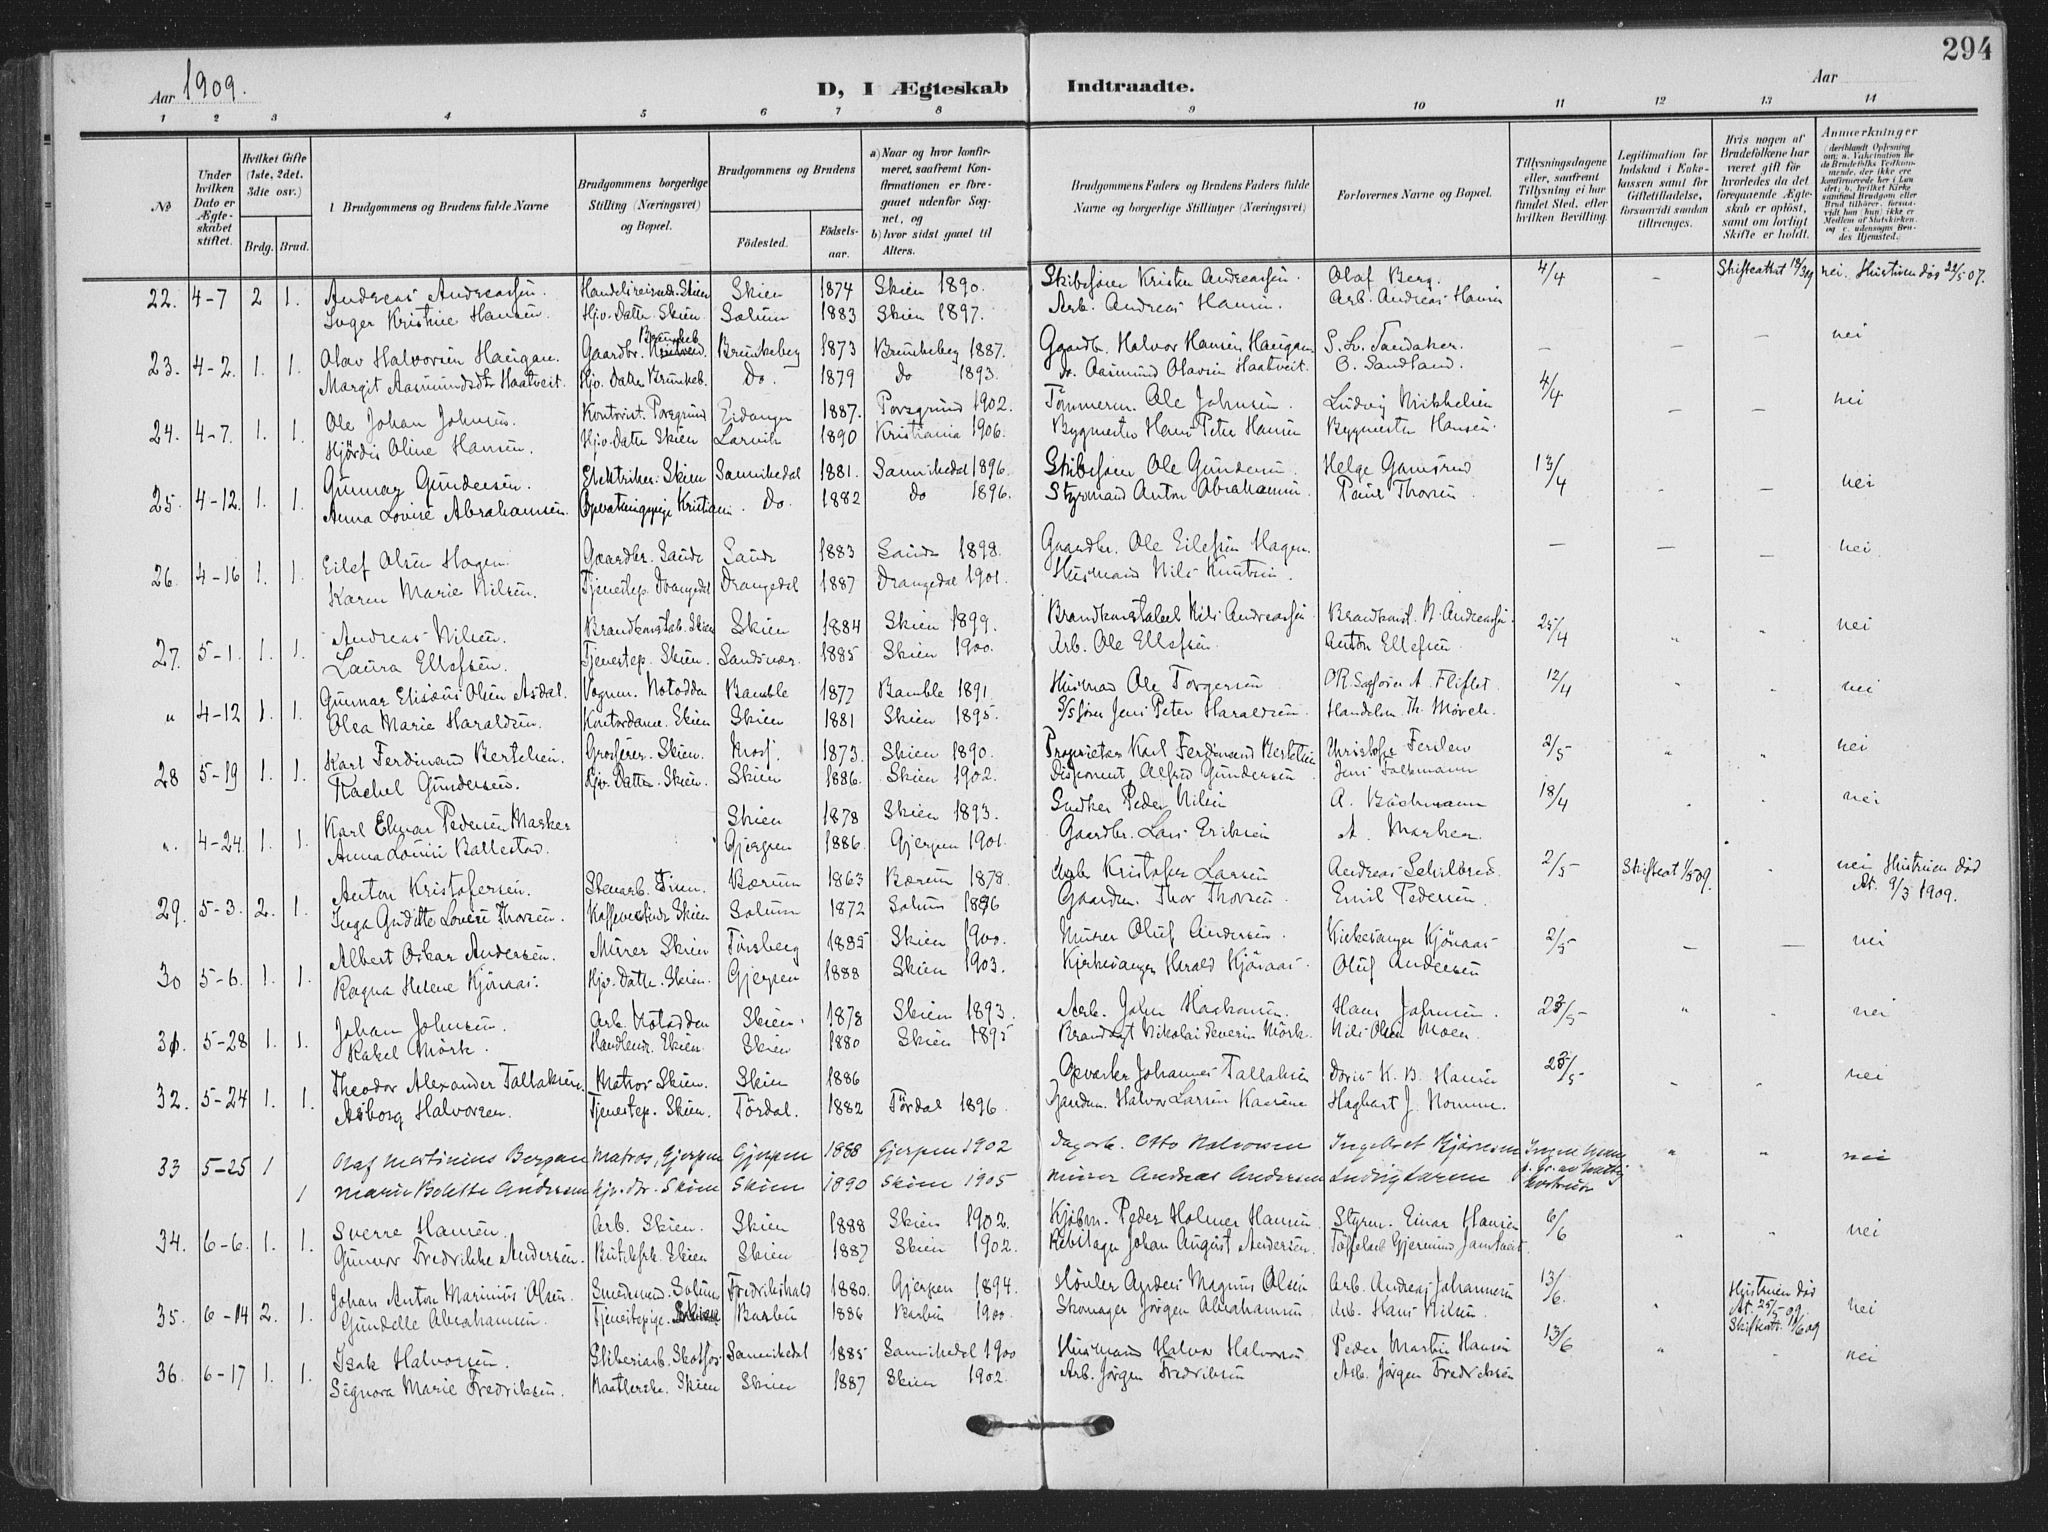 294
Aar 1909.
D, I Ægteskab Indtraadte.
Aar
1 2 3 4 5 6 7 8 9 10 11 12 13 14
No
Under hvilken Dato er Ægteskabet stiftet.
Hvilket Gifte (1ste, 2det, 3die osv.)
Brdg. Brud.
Brudgommens og Brudens fulde Navne
Brudgommens borgerlige Stilling (Næringsvei) og Bopæl.
Brudgommens og Brudens
Födested. Fødselsaar.
a) Naar og hvor konfirmeret, saafremt Konfirmationen er foregaaet udenfor Sognet, og
b) hvor sidst gaaet til Alters.
Brudgommens Faders og Brudens Faders fulde Navne og borgerlige Stillinger (Næringsvei)
Forlovernes Navne og Bopæl.
Tillysningsdagene eller, saafremt Tillysning ei har fundet Sted, efter hvilken Bevilling.
Legitimation for Indskud i Enkekassen samt for Giftetilladelse, forsaavidt saadan tiltrænges.
Hvis nogen af Brudefolkene har været gift før hvorledes da det foregaaende Ægteskab er opløst, samt om lovligt Skifte er holdt.
Anmærkninger
22. 4-7 2 1. Andreas Andreassen. Handelsreisende Skien Skien 1874 Skien 1890. Skibsfører Kristen Andreassen. Olaf Berg. 4/4 - nei. Hustruen død
Inger Kristine Hansen. Hjv. Datter Skien. Solum 1883 Skien 1897. Arb. Andreas Hansen. Arb. Andreas Hansen
23. 4-2. 1. 1. Olav Halvorsen Haugan. Gaardbr. Brunkeberg 1873 Brunkeberg 1887. Gaardb. Halvor Hansen Haugan - - - nei
Margit Aasmundsdtr Haatveit. Hjv. Datter Brunkeb. Do. 1879 do 1893. do. Aasmund Olavsen Haatveit. O. Sandland.
24. 4-7. 1. 1. Ole Johan Johnsen. Kontorist. Porsgrund Eidanger 1887. Porsgrund 1902. Tömmerm. Ole Johnsen. Ludvig Mikkelsen 4/4 - - nei
Hjördis Oline Hansen. Hjv. Datter Skien Larvik 1890 Kristiania 1906. Bygmester Hans Peter Hansen Bygmester Hansen.
25. 4-12. 1. 1. Gunnar Gundersen. Elektriker. Skien Sannikedal 1881. Sannikedal 1896. Skibsfører Ole Gundersen. Helge 13/4 nei
Anna Lovise Abrahamsen. Do. 1882 do 1896. Styrmand Anton Abrahamsen Paul Thorsen.
26. 4-16 1. 1. Eilef Olsen Hagen. Gaardbr. Saude Saude 1883 Saude 1898. Gaardbr. Ole Eilefsen Hagen. - - - nei
Karen Marie Nilsen. Tjenestep. Drangedal Drangedal 1887 Drangedal 1901. Husmand Nils Knutsen.
27. 5-1. 1. 1. Andreas Nilsen. Brandkonstab. Skien Skien 1884 Skien 1899. Brandkonstabel Nils Andreassen Brandkonst. N. Andreassen. 25/4 " " nei
Laura Ellefsen. Tjenestep. Skien. 1885 Skien 1900. Arb. Ole Ellefsen. Anton Ellefsen
" 4-12 1. 1. Gunnar Elisæus Olsen Asdal. Vognm. Notodden Bamble 1877 Bamble 1891. Husmand Ole Torgersen 12/4 " " nei
Olea Marie Haraldsen. Kontordame. Skien Skien 1881 Skien 1895. S/sfører Jens Peter Haraldsen. Handelsm. Th. Mørch.
28 5-19 1. 1. Karl Ferdinand Bertelsen. Grosserer. Skien. 1873. Skien 1890. Proprietær Karl Ferdinand Bertelsen 2/5 " " nei
Rachel Gundersen. Hjv. Datter. Skien. Skien 1886. Skien 1902. Disponent Alfred Gundersen.
". 4-24. 1. 1. Karl Elmar Pedersen Marker Skien 1878 Skien 1893. Snedker Peder Nilsen 18/4 " " nei
Anna Louise Ballestad. Gjerpen 1886. Gjerpen 1901. Gaardbr. Lars Eriksen
29. 5-3. 2. 1. Anton Kristofersen. Stenarb. Bærum 1863 Bærum 1878. Arb. Kristofer Larsen 2/5 Skifteat. 1/5 09. nei Hustruen død
Inga Lovise Thorsen. Skien Solum 1872 Solum Gaardm. Thor Thorsen Emil Pedersen. 9/3 1909.
30 5-6. 1. 1. Albert Oskar Andersen. Murer Skien Tönsberg 1885 Skien 1900. Murer Oluf Andersen. Kirkesanger Kjönaas 2/5 - - nei
Ragna Helene Kjönaas. Hjv. Datter. Skien. Gjerpen 1888 Skien 1903. Kirkesanger Harald Kjönaas. Oluf Andersen
31. 5-28 1. 1. Johan Johnsen. Arb. Notodden Skien. 1878 Skien 1893. Arb. John Haakonsen. Hans Johnsen. 23/5 " " nei
Rakel Mörk. Skien. Skien 1880 Skien 1895 Nikolai Severin Mörk. Nils Olsen Moen.
32. 5-24 1. 1. Theodor Alexander Tallaksen. Matros Skien. Skien 1886 Opvarter Johannes Tallaksen K. B. Hansen 23/5 " " nei
Asborg Halvorsen. Tjenestep. Skien. Tördal. 1882 Tördal 1896. Gaardm. Halvor Larsen Hagbart J. Nomme.
33 5-25 1 Olaf Martinius Bergan Matros, Gjerpen Gjerpen 1888 Gjerpen 1902 Dagarb. Otto Halvorsen " " nei
1 Marie Bolette Andersen Hjv. dtr. Skien Skien 1890 Skien 1905 Murer Andreas Andersen Ludvig Larsen
34. 6-6. 1. 1. Sverre Hansen. Arb. Skien. Skien 1888 Skien 1902. Kjöbm. Peder Holmer Hansen Styrm. Einar Hansen 6/6 " " nei
Gunvor Fredrikke Andersen. Skien Skien 1887 Skien 1902. Johan August Andersen.
35. 6-14 2. 1. Johan Anton Marinius Olsen. Solum Fredrikshald 1880. Gjerpen 1894. Hövler Anders Magnus Olsen Arb. Andreas Johannesen 13/6. " Hustruen død nei
Gundelle Abrahamsen. Tjenestepige. Skien Barbu 1886 Barbu 1900. Skomager Jørgen Abrahamsen Arb. Hans Nilsen.
36. 6-17 1. 1. Isak Halvorsen. Sliberiarb. Skotfos. Sannikedal 1885 Sannikedal 1900 Husmand Halvor Halvorsen Peder Martin Hansen 13/6 " " nei
Signora Marie Fredriksen. Skien Skien 1887 Skien 1902. Arb. Jörgen Fredriksen Arb. Jörgen Fredriksen